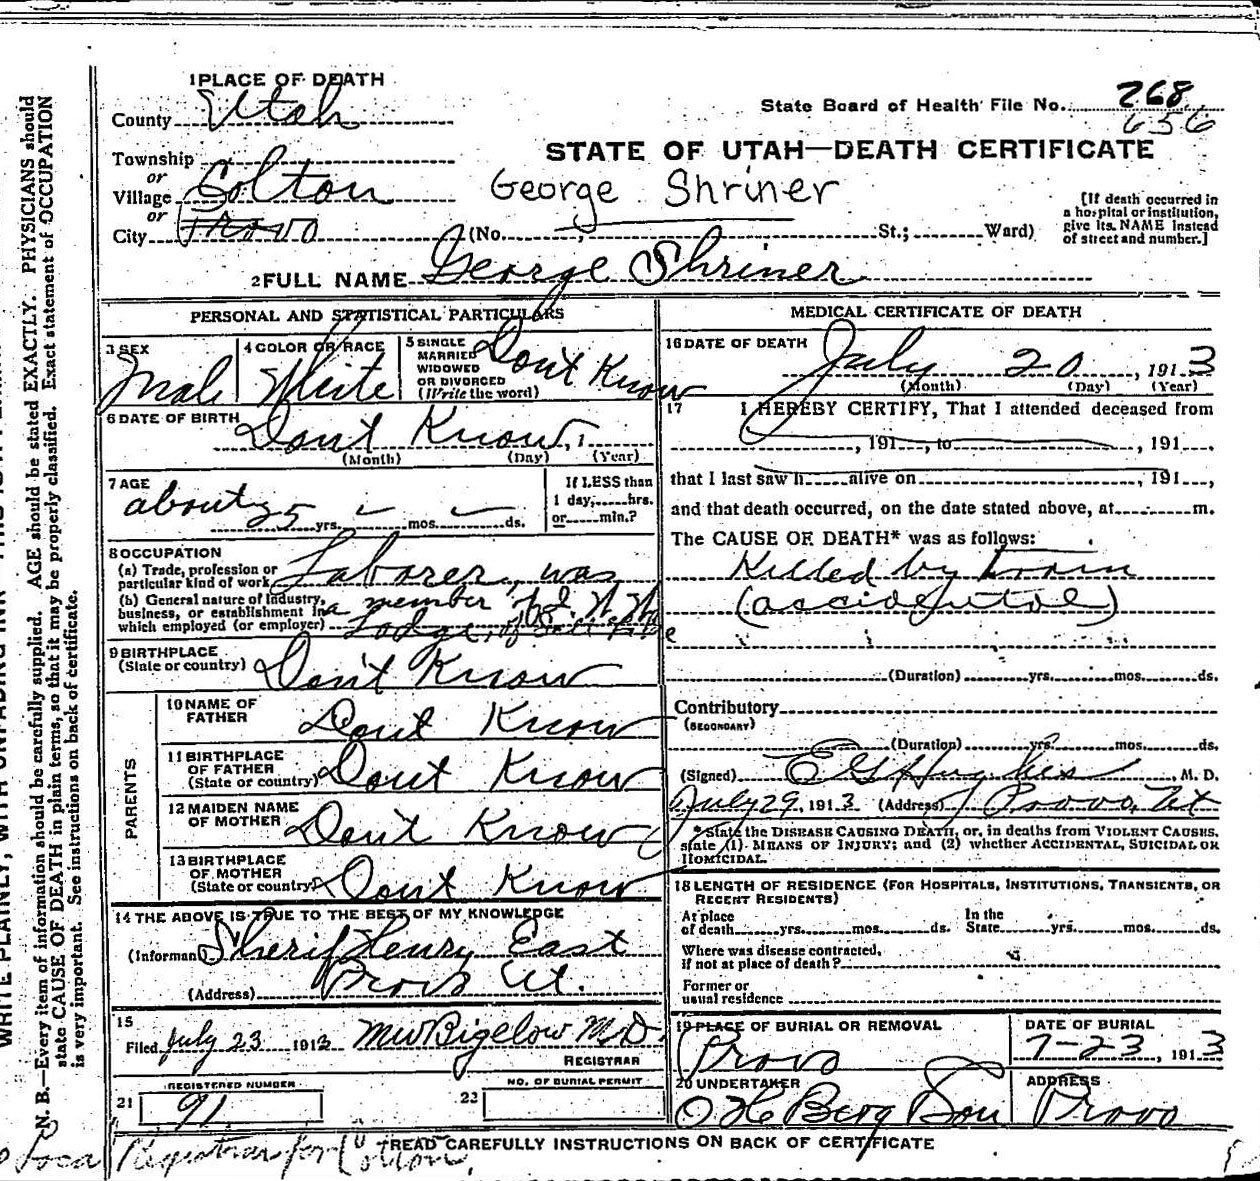 1 PLACE OF DEATH
County Utah
State Board of Health File No. 268
656
STATE OF UTAH—DEATH CERTIFICATE
Township
or
Village Colton
George Shriner
or
City Provo (No. St.; Ward)
[If death occurred in
a hospital or institution,
give its NAME instead
of street and number.]
2 FULL NAME George Shriner
PERSONAL AND STATISTICAL PARTICULARS
3 SEX
Male
4 COLOR OR RACE
White
5 SINGLE
MARRIED
WIDOWED
OR DIVORCED
(Write the word)
Don't Know
6 DATE OF BIRTH
Dont Know, 1
(Month) (Day) (Year)
7 AGE
about 25 yrs. mos. ds.
If LESS than
1 day, hrs.
or min.?
8 OCCUPATION
(a) Trade, profession or
particular kind of work Laborer, was
(b) General nature of industry,
business, or establishment in a member
which employed (or employer) Lodge, of Salt
9 BIRTHPLACE
(State or country) Don't Know
PARENTS
10 NAME OF
FATHER Dont Know
11 BIRTHPLACE
OF FATHER
(State or country) Dont Know
12 MAIDEN NAME
OF MOTHER Don't Know
13 BIRTHPLACE
OF MOTHER
(State or country) Dont Know
14 THE ABOVE IS TRUE TO THE BEST OF MY KNOWLEDGE
(Informant) Sherif Henry East
(Address) Provo Ut.
15
Filed July 23 1913 MW Bigelow M.D
REGISTRAR
REGISTERED NUMBER
21 91
NO. OF BURIAL PERMIT
22
MEDICAL CERTIFICATE OF DEATH
16 DATE OF DEATH
July 20, 1913
(Month) (Day) (Year)
17 I HEREBY CERTIFY, That I attended deceased from
, 191 , to , 191
that I last saw h alive on , 191 ,
and that death occurred, on the date stated above, at m.
The CAUSE OF DEATH* was as follows:
Killed by train
(accidental)
(Duration) yrs. mos. ds.
Contributory
(SECONDARY)
(Duration) yrs. mos. ds.
(Signed) E G Hughes, M. D.
July 29, 1913 (Address) Provo, Ut
*State the DISEASE CAUSING DEATH, or, in deaths from VIOLENT CAUSES,
state (1) MEANS OF INJURY; and (2) whether ACCIDENTAL, SUICIDAL OR
HOMICIDAL.
18 LENGTH OF RESIDENCE (FOR HOSPITALS, INSTITUTIONS, TRANSIENTS, OR
RECENT RESIDENTS)
At place
of death yrs. mos. ds.
In the
State yrs. mos. ds.
Where was disease contracted,
if not at place of death?
Former or
usual residence
19 PLACE OF BURIAL OR REMOVAL
Provo
DATE OF BURIAL
7-23, 1913
20 UNDERTAKER
O H Berg Son
ADDRESS
Provo
READ CAREFULLY INSTRUCTIONS ON BACK OF CERTIFICATE
Local Registrar for Colton.
N. B.—Every item of information should be carefully supplied. AGE should be stated EXACTLY. PHYSICIANS should
state CAUSE OF DEATH in plain terms, so that it may be properly classified. Exact statement of OCCUPATION
is very important. See instructions on back of certificate.